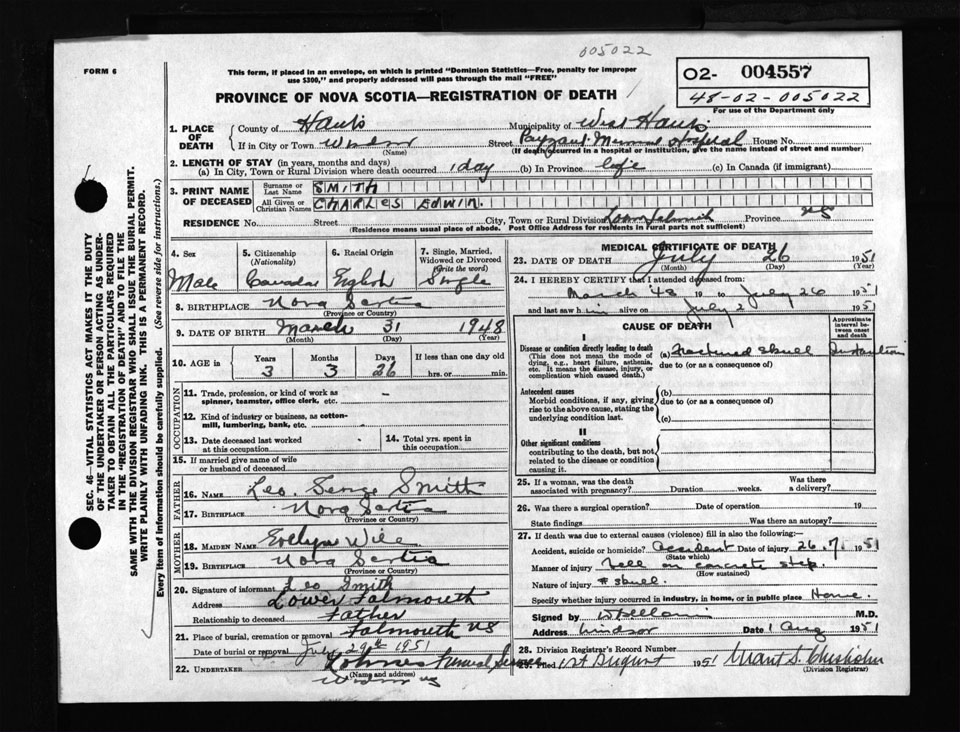 005022
FORM 6
This form, if placed in an envelope, on which is printed "Dominion Statistics—Free, penalty for improper
use $300," and properly addressed will pass through the mail "FREE"
O2- 004557
48-02-005022
For use of the Department only
PROVINCE OF NOVA SCOTIA—REGISTRATION OF DEATH
1. PLACE OF DEATH
County of Hants Municipality of West Hants
If in City or Town Windsor (Name) Street Payzant Memorial Hospital House No.
(If death occurred in a hospital or institution, give the name instead of street and number)
2. LENGTH OF STAY (in years, months and days)
(a) In City, Town or Rural Division where death occurred 1 day (b) In Province life (c) In Canada (if immigrant)
3. PRINT NAME OF DECEASED
Surname or Last Name SMITH
All Given or Christian Names CHARLES EDWIN.
RESIDENCE No. Street City, Town or Rural Division Lower Falmouth Province NS
(Residence means usual place of abode. Post Office Address for residents in rural parts not sufficient)
4. Sex Male
5. Citizenship (Nationality) Canadian
6. Racial Origin English
7. Single, Married, Widowed or Divorced (Write the word) Single
8. BIRTHPLACE Nova Scotia
(Province or Country)
9. DATE OF BIRTH March 31 1948
(Month) (Day) (Year)
10. AGE in Years 3 Months 3 Days 26 If less than one day old hrs. or min.
OCCUPATION
11. Trade, profession, or kind of work as
spinner, teamster, office clerk, etc. -
12. Kind of industry or business, as cotton-
mill, lumbering, bank, etc.
13. Date deceased last worked
at this occupation
14. Total yrs. spent in
this occupation
15. If married give name of wife
or husband of deceased
FATHER
16. NAME Leo George Smith
17. BIRTHPLACE Nova Scotia
(Province or Country)
MOTHER
18. MAIDEN NAME Evelyn Wile
19. BIRTHPLACE Nova Scotia
(Province or Country)
20. Signature of informant Leo Smith
Address Lower Falmouth
Relationship to deceased Father
21. Place of burial, cremation or removal Falmouth NS
Date of burial or removal July 29th 1951
22. UNDERTAKER Funeral Service
(Name and address)
Windsor NS
MEDICAL CERTIFICATE OF DEATH
23. DATE OF DEATH July 26 1951
(Month) (Day) (Year)
24. I HEREBY CERTIFY that I attended deceased from:
March '48 19 to July 26 1951
and last saw him alive on July 2 1951
CAUSE OF DEATH
Approximate interval between onset and death
I
Disease or condition directly leading to death
(This does not mean the mode of
dying, e.g., heart failure, asthenia,
etc. It means the disease, injury, or
complication which caused death.)
(a) Fractured Skull
due to (or as a consequence of)
Antecedent causes
Morbid conditions, if any, giving
rise to the above cause, stating the
underlying condition last.
(b)
due to (or as a consequence of)
(c)
II
Other significant conditions
contributing to the death, but not
related to the disease or condition
causing it.
25. If a woman, was the death
associated with pregnancy? Duration weeks. Was there
a delivery?
26. Was there a surgical operation? Date of operation 19
State findings Was there an autopsy?
27. If death was due to external causes (violence) fill in also the following:—
Accident, suicide or homicide? Accident Date of injury 26.7. 1951
(State which)
Manner of injury Fell on concrete step.
(How sustained)
Nature of injury # skull.
Specify whether injury occurred in industry, in home, or in public place Home.
Signed by M.D.
Address Windsor Date 1 Aug 1951
28. Division Registrar's Record Number
29. Filed 1st August 1951 Grant S. Chisholm
(Division Registrar)
SEC. 46—VITAL STATISTICS ACT MAKES IT THE DUTY
OF THE UNDERTAKER OR PERSON ACTING AS UNDER-
TAKER TO OBTAIN ALL THE PARTICULARS REQUIRED
IN THE "REGISTRATION OF DEATH" AND TO FILE THE
SAME WITH THE DIVISION REGISTRAR WHO SHALL ISSUE THE BURIAL PERMIT.
WRITE PLAINLY WITH UNFADING INK. THIS IS A PERMANENT RECORD.
Every item of information should be carefully supplied. (See reverse side for instructions.)